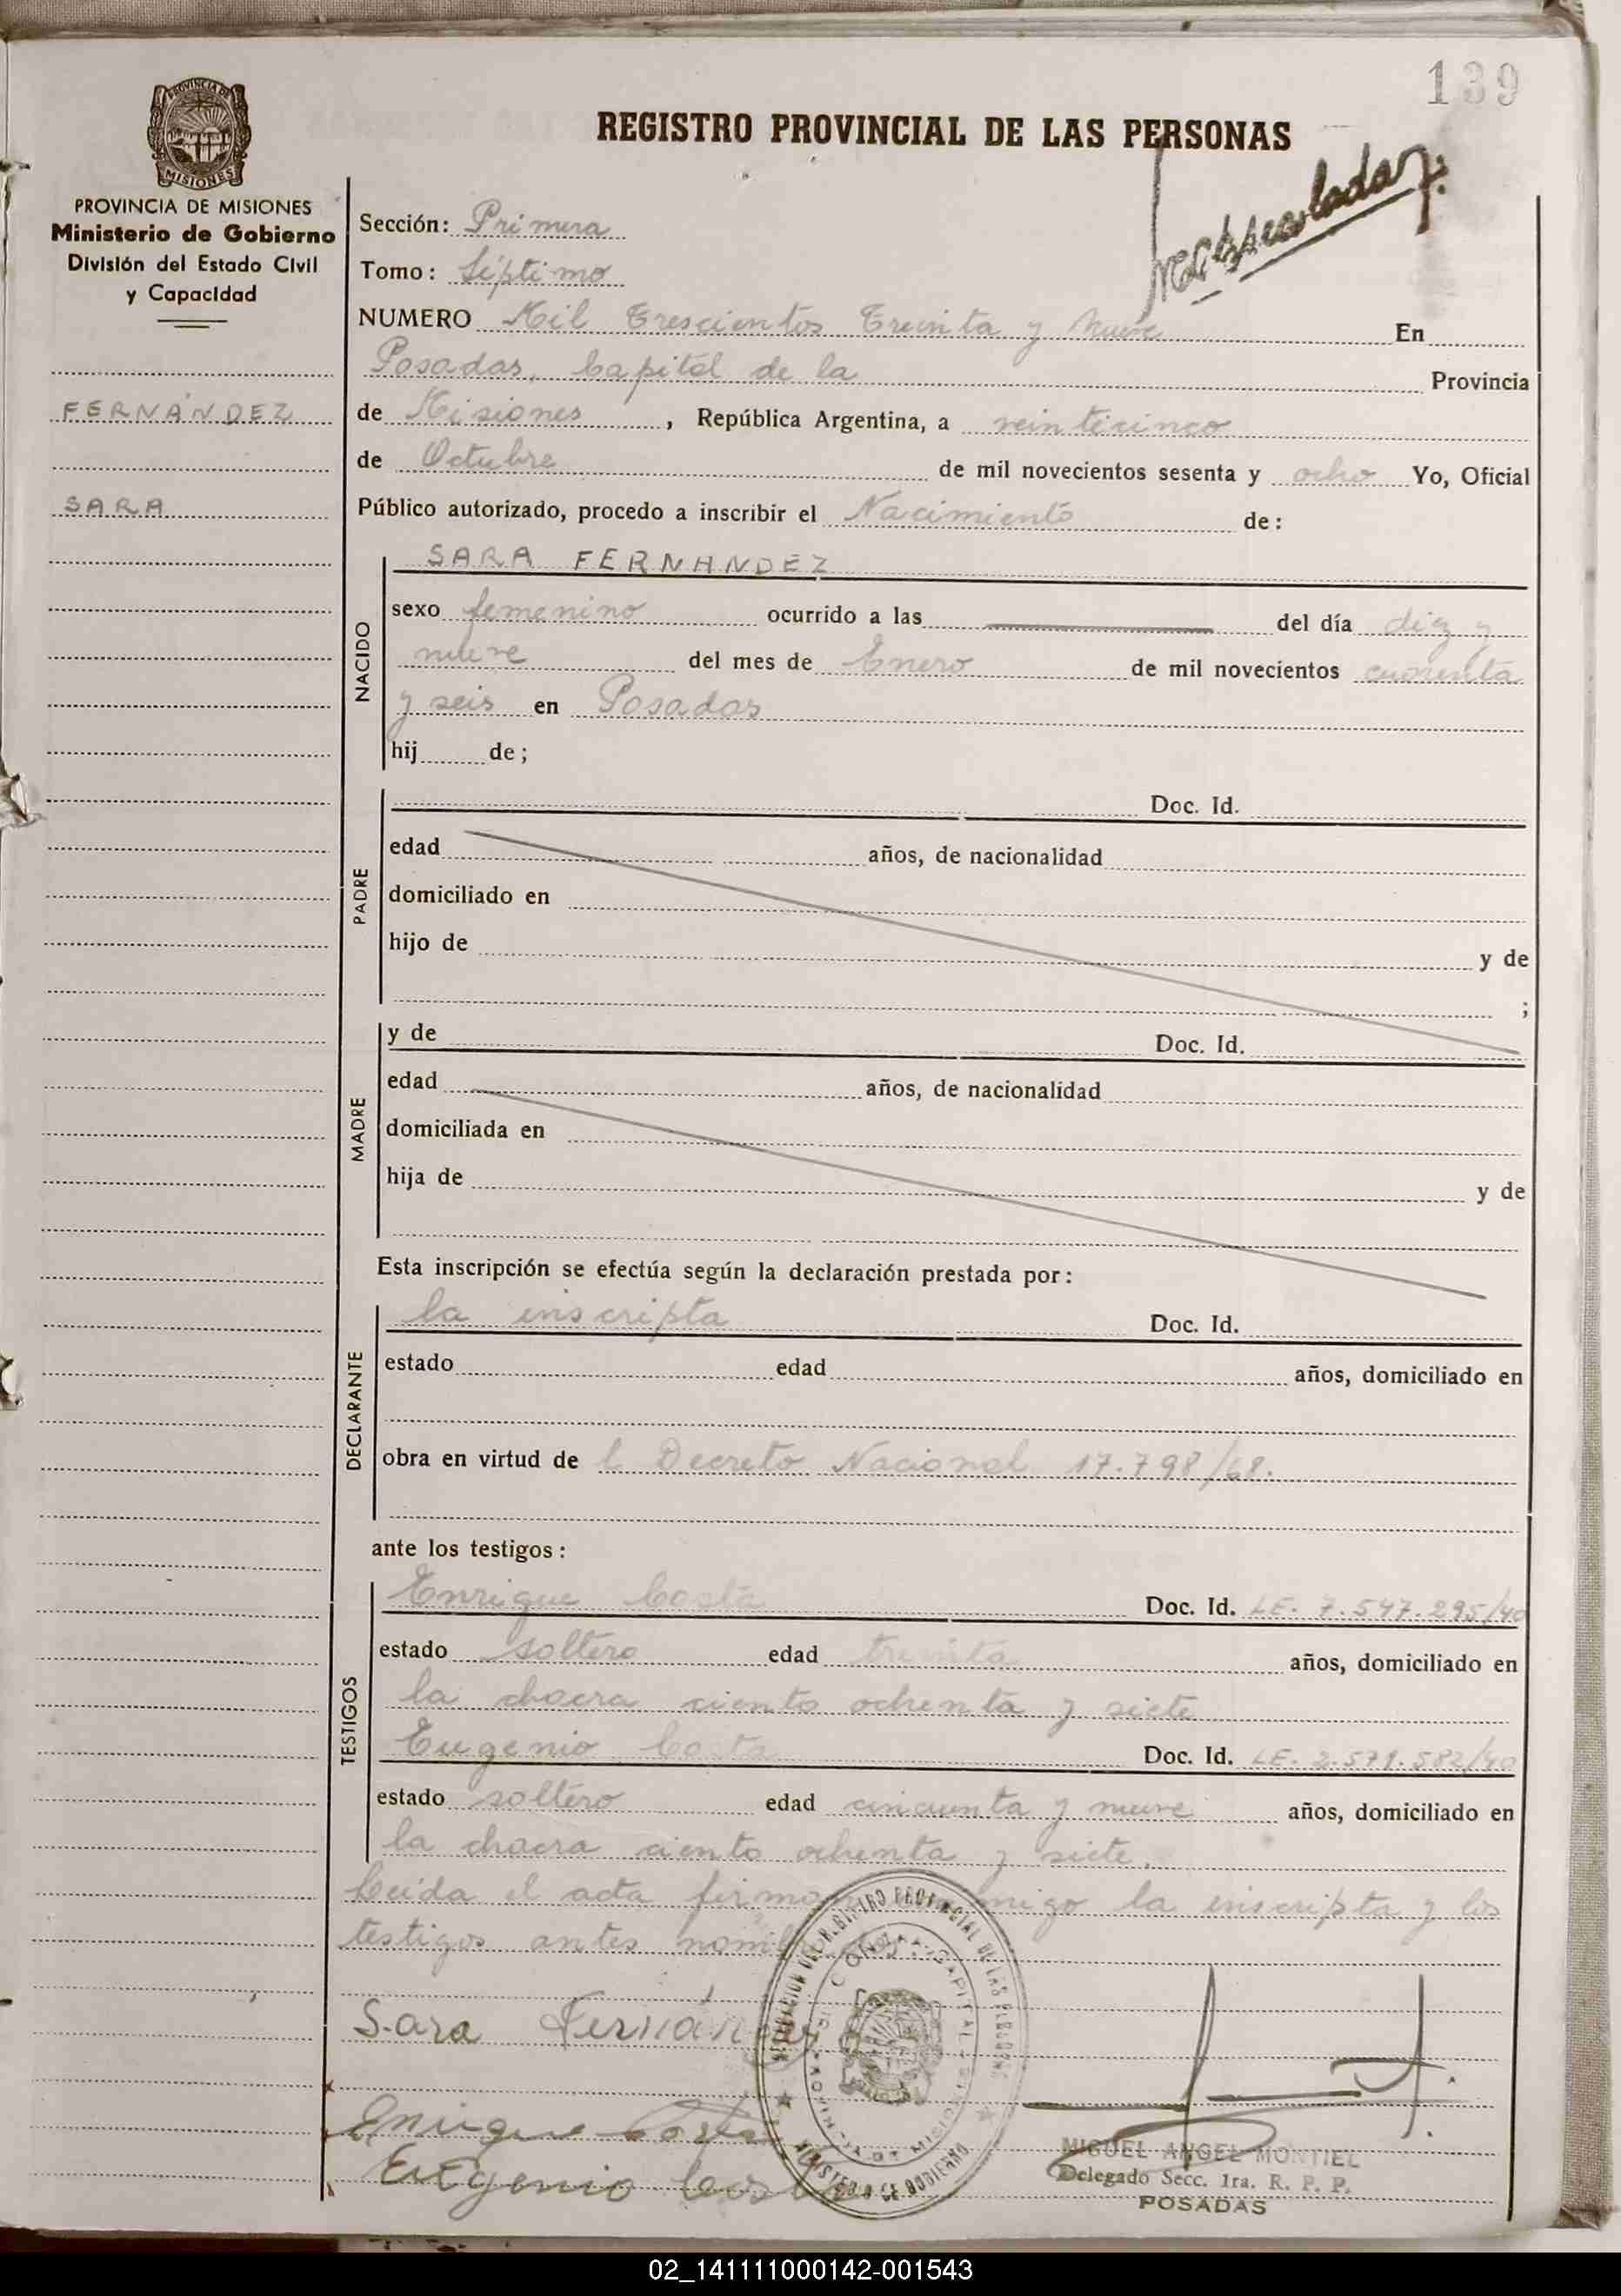 139
REGISTRO PROVINCIAL DE LAS PERSONAS
PROVINCIA DE MISIONES
Ministerio de Gobierno
División del Estado Civil
y Capacidad
FERNÁNDEZ
SARA
Sección: Primera
Tomo: Séptimo
NUMERO Mil Trescientos Treinta y Nueve En
Posadas, Capital de la Provincia
de Misiones, República Argentina, a veinticinco
de Octubre de mil novecientos sesenta y ocho Yo, Oficial
Público autorizado, procedo a inscribir el Nacimiento de:
NACIDO
SARA FERNANDEZ
sexo femenino ocurrido a las del día diez y
nueve del mes de Enero de mil novecientos cuarenta
y seis en Posadas
hij de;
PADRE
Doc. Id.
edad años, de nacionalidad
domiciliado en
hijo de y de
;
MADRE
y de Doc. Id.
edad años, de nacionalidad
domiciliada en
hija de y de
Esta inscripción se efectúa según la declaración prestada por:
DECLARANTE
la inscripta Doc. Id.
estado edad años, domiciliado en
obra en virtud de l Decreto Nacional 17.798/68.
ante los testigos:
TESTIGOS
Enrique Costa Doc. Id. LE. 7.547.295/40
estado soltero edad treinta años, domiciliado en
la chacra ciento ochenta y siete
Eugenio Costa Doc. Id. LE. 2.571.582/40
estado soltero edad cincuenta y nueve años, domiciliado en
la chacra ciento ochenta y siete.
Leída el acta la inscripta y los
testigos antes
Sara Fernández
Enrique Costa
Eugenio Costa
MIGUEL ANGEL MONTIEL
Delegado Secc. 1ra. R. P. P.
POSADAS
02_141111000142-001543